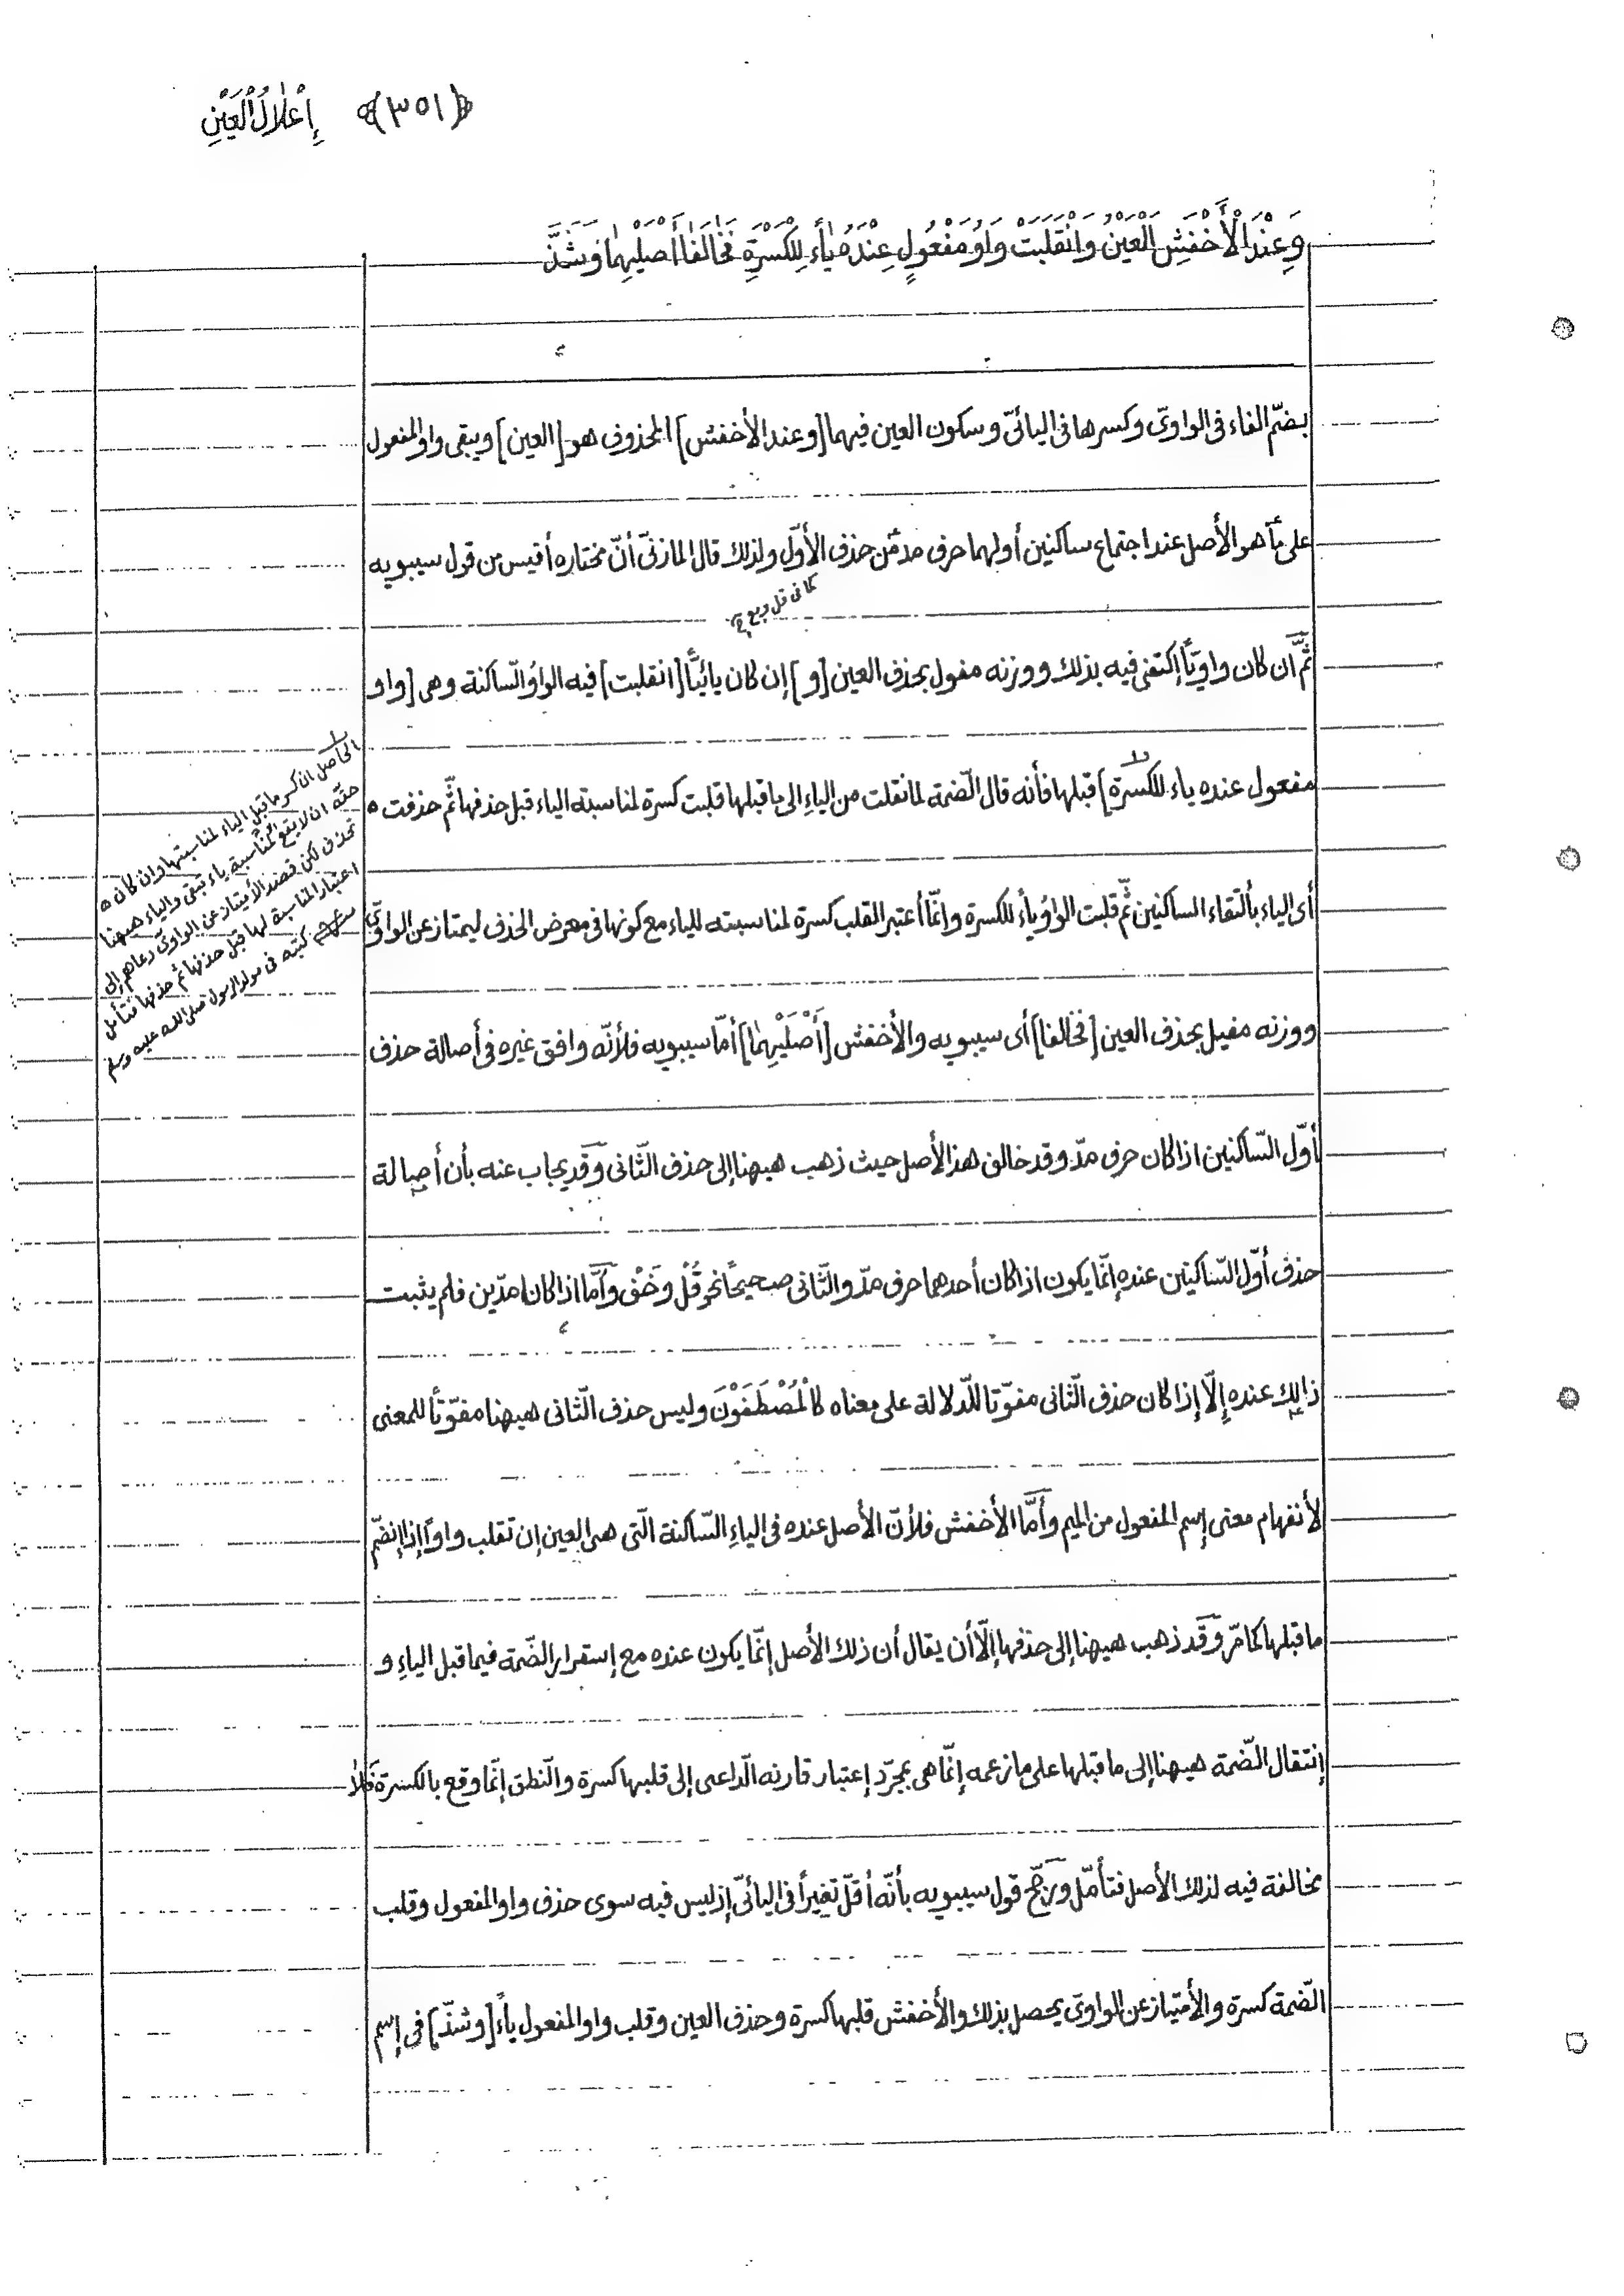 إِعْلَالُ الْعَيْنِ ﴿٣٥١﴾
وَعِنْدَ الْأَخْفَشِ الْعَيْنُ وَانْقَلَبَتْ وَاوُ مَفْعُولٍ عِنْدَهُ يَاءً لِلْكَسْرَةِ فَخَالَفَا أَصْلَيْهِمَا وَشَذَّ
بضمّ الفاء فى الواوىّ وكسرها فى اليائىّ وسكون العين فيهما [وعند الأخفش] المحذوف هو [العين] ويبقى واو المفعول
على مآ هو الأصل عند اجتماع ساكنين أولهما حرف مد مّن حذف الأوّل ولذلك قال المازنىّ أنّ مختاره أقيس من قول سيبويه
كما فى قل وبع
ثمّ ان كان واويّاً إكتفى فيه بذلك ووزنه مفول بحذف العين [و] إن كان يائيّاً [انقلبت] فيه الواو السّاكنة وهى [واو
مفعول عنده ياء للكسرة] قبلها فأنه قال الضّمة لما نقلت من الياءِ إلى ما قبلها قلبت كسرة لمناسبته الياء قبل حذفها ثمّ حذفت ه
أى الياء بألتقاء الساكنين ثمّ قلبت الواوُ يأءً للكسرة وإنّما أعتبر القلب كسرة لمناسبته للياء مع كونها فى معرض الحذف ليمتاز عن الواوىّ
ووزنه مفيل بحذف العين [فخالفا] أى سيبويه والأخفش [أَصْلَيْهِمَا] أمّا سيبويه فلأنّه وافق غيره فى أصالة حذف
أوّل السّاكنين اذا كان حرف مدّ وقد خالف هذا الأصل حيث ذهب هيهنا إلى حذف الثّانى وَقَد يجاب عنه بأن أصالة
حذف أوّل السّاكنين عنده إنّما يكون اذا كان أحدهما حرف مدّ والثّانى صحيحًا نحو قُلْ وخَفْ وَأَمَّا اذا كانا مدّين فلم يثبت
ذالك عنده إلّا إذا كان حذف الثّانى مفوّتا للدّلالة على معناه كالْمُصْطَفَوْنَ وليس حذف الثّانى هيهنا مفوّتاً للمعنى
لأنفهام معنى إسم المفعول من الميم وأَمَّا الأخفش فلأنّ الأصل عنده فى الياءِ السّاكنة الّتى هى العين إن تقلب واواً إذا إنضمّ
ما قبلها كما مرّ وقَد ذهب هيهنا إلى حذفها إلّا أن يقال أن ذلك الأصل إنّما يكون عنده مع إستقرار الضّمة فيما قبل الياءِ و
إنتقال الضّمة هيهنا إلى ما قبلها على ما زعمه إنّما هى بمجرّد إعتبار قارنه الدّاعى إلى قلبها كسرة والنّطق إنّما وقع بالكسرة فَلا
مخالفة فيه لذلك الأصل فتأمّل ورَجّح قول سيبويه بأنّه أقلّ تغيراً فى اليائىّ إذ ليس فيه سوى حذف واو المفعول وقلب
الضّمة كسرة والأمتياز عن الواوىّ يحصل بذلك والأخفش قلبها كسرة وحذف العين وقلب واو المفعول ياءً [وشذّ] فى إسم
الحاصل ان كسر ما قبل الياء لمناسبتها وان كان ه
حقه ان لا يقع المناسبة ياء تبقى والياء هيهنا
تحذف لكن قصد الأمتياز عن الواوىّ دعاهم إلى
اعتبار المناسبة لها قبل حذفها ثم حذفها فتأمل
كتبه فى مولد الرسول صلى الله عليه وسلم